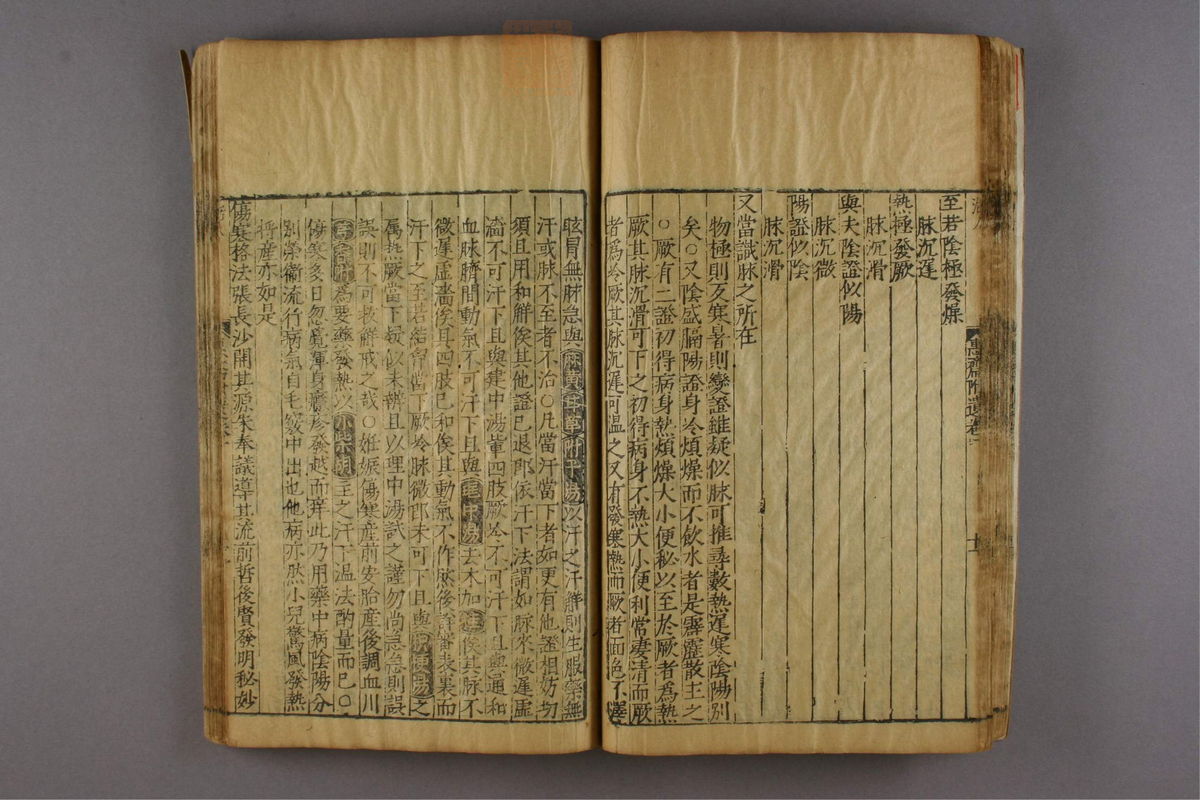 至若陰極發燥
脉沉遲
熱極發厥
脉沉滑
與夫陰證似陽
脉沉微
陽證似陰
脉沉滑
又當識脉之所在
物極則反寒暑則變證雖疑似脉可推尋數熱遲寒陰陽别
矣○又陰盛膈陽證身冷煩燥而不飲水者是霹靂散主之
○厥有二證初得病身熱煩燥大小便秘以至於厥者爲熱
厥其脉沉滑可下之初得病身不熱大小便利常凄清而厥
者爲冷厥其脉沉遲可温之又有發寒熱而厥者面色不澤
眩冒無脉急與麻黄甘草附子湯以汗之汗觧則生服藥無
汗或脉不至者不治○凡當汗當下者如更有他證相妨切
須且用和觧俟其他證已退郎依汗下法謂如脉來微遲虚
濇不可汗下且與建中湯軰四肢厥冷不可汗下且與通和
血脉臍間動氣不可汗下且與理中湯去木加俟其脉不
微遲虚濇俟且四肢已和俟其動氣不作然後詳審表裏而
汗下之至若結胷當下厥冷脉微郎未可下且與之
属熱厥當下疑似未辨且以理中湯試之謹勿尚急急則誤
誤則不可救觧戒之哉○姙娠傷寒産前安胎産後調血川
芎爲要藥發熱以小柴胡主之汗下温法酌量而已○
傷寒多日忽覺渾身𤺋疹發越而痒此乃用藥中病陰陽分
别榮衛流行病氣自毛竅中出也他病亦然小兒驚風發熱
將産亦如是
傷寒格法張長沙開其源朱奉議導其流前哲後賢發明秘妙